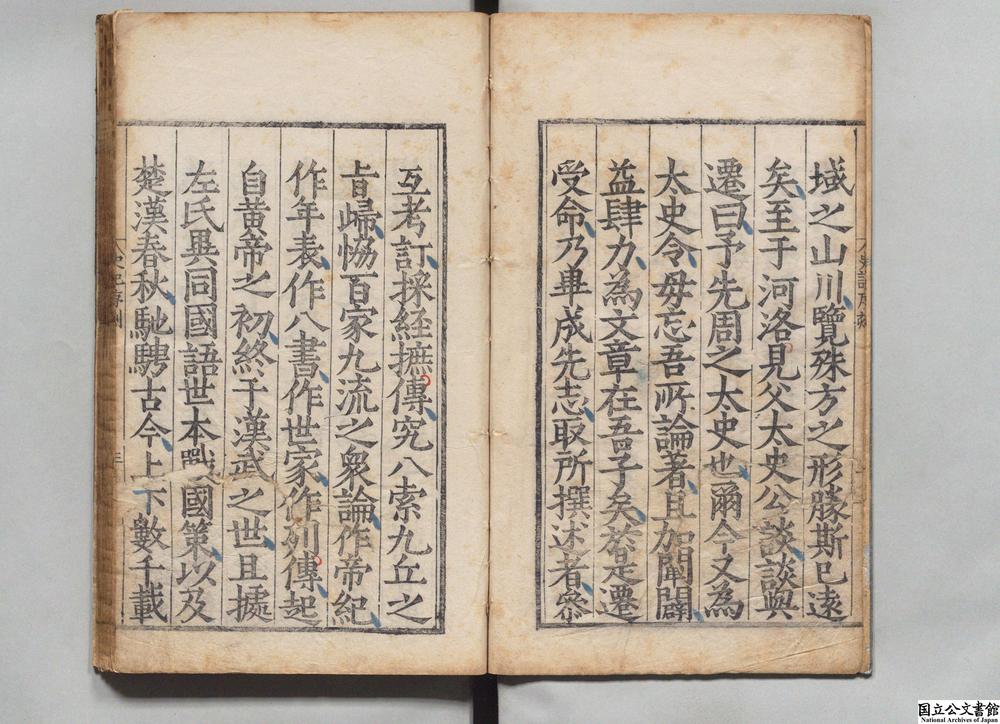 域之山川覽殊方之形勝斯已遠
矣至于河洛見父太史公談談與
遷曰予先周之太史也爾今又為
太史令毋忘吾所論著且加開闢
益肆力為文章在吾子矣於是遷
受命乃畢成先志取所撰述者參
互考訂採経摭傳究八索九丘之
旨歸恊百家九流之衆論作帝紀
作年表作八書作世家作列傳起
自黄帝之初終于漢武之世且據
左氏異同國語世本戰國策以及
楚漢春秋馳騁古今上下數千載
国立公文書館
National Archives of Japan